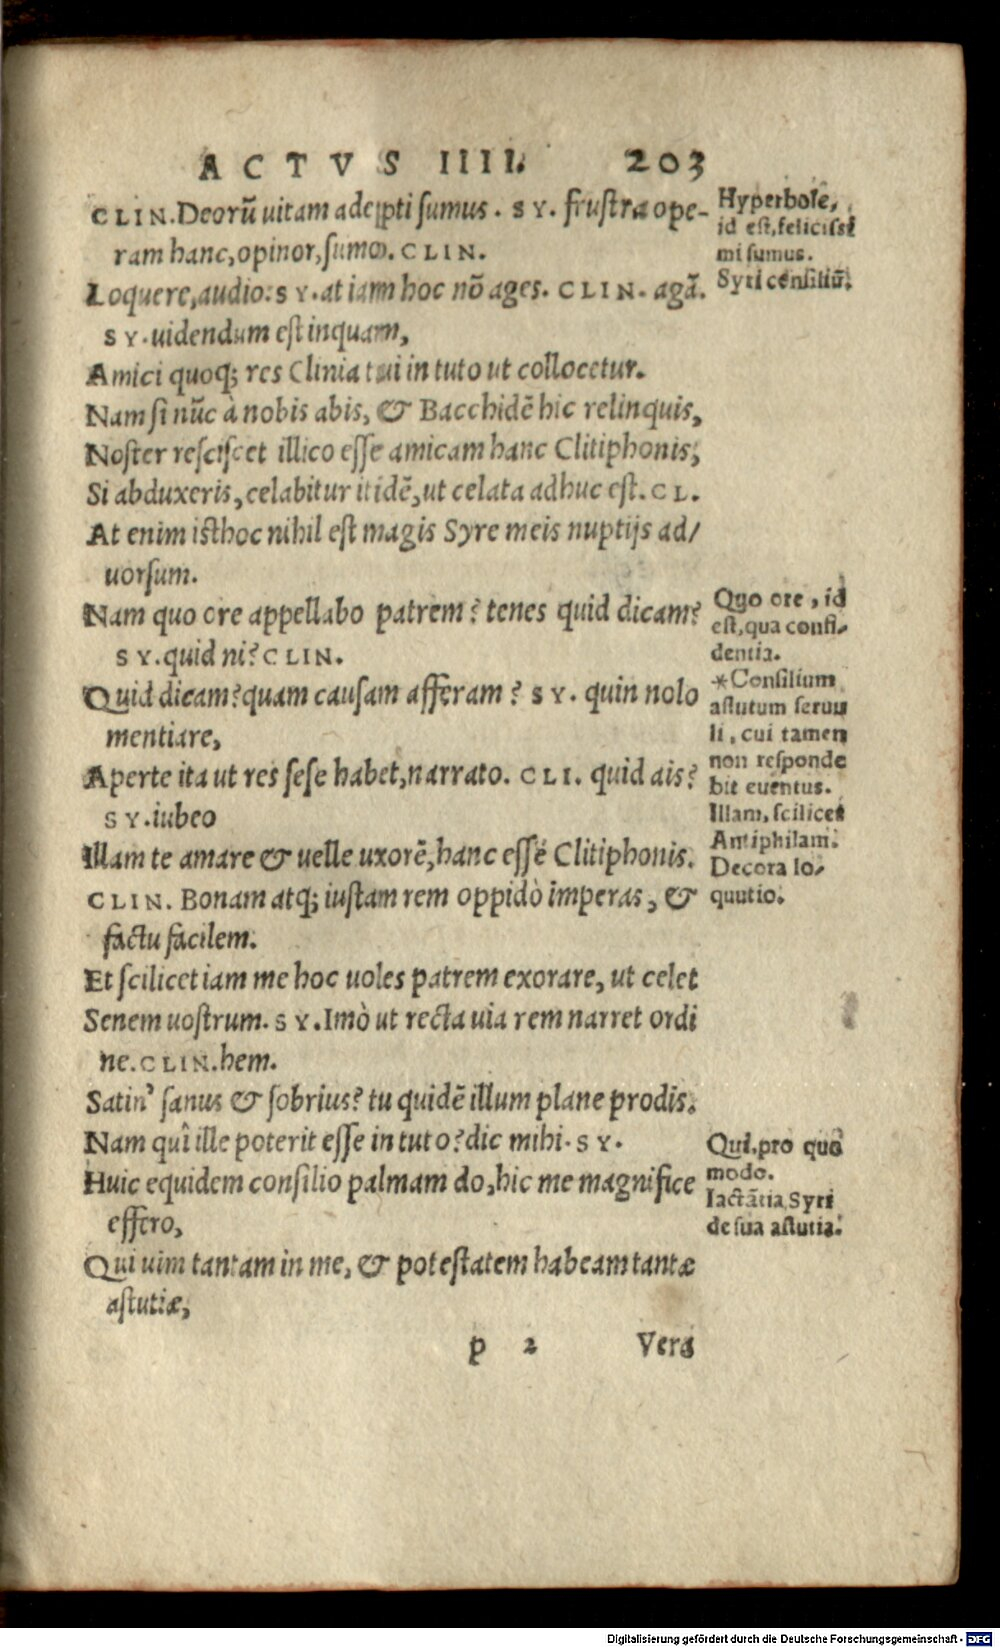 ACTVS IIII. 203
CLIN. Deorũ uitam adepti sumus. SY. frustra ope-
ram hanc, opinor, sumo. CLIN.
Loquere, audio: SY. at iam hoc nõ ages. CLIN. agã.
SY. uidendum est inquam,
Amici quoq; res Clinia tui in tuto ut collocetur.
Nam si nũc à nobis abis, & Bacchidẽ hic relinquis,
Noster resciscet illico esse amicam hanc Clitiphonis;
Si abduxeris, celabitur itidẽ, ut celata adhuc est. CL.
At enim isthoc nihil est magis Syre meis nuptijs ad/
uorsum.
Nam quo ore appellabo patrem? tenes quid dicam?
SY. quid ni? CLIN.
Quid dicam? quam causam afferam? SY. quin nolo
mentiare,
Aperte ita ut res sese habet, narrato. CLI. quid ais?
SY. iubeo
Illam te amare & uelle uxorẽ, hanc esse Clitiphonis.
CLIN. Bonam atq; iustam rem oppidò imperas, &
factu facilem.
Et scilicet iam me hoc uoles patrem exorare, ut celet
Senem uostrum. SY. Imò ut recta uia rem narret ordi
ne. CLIN. hem.
Satin' sanus & sobrius? tu quidẽ illum plane prodis.
Nam quî ille poterit esse in tuto? dic mihi. SY.
Huic equidem consilio palmam do, hic me magnifice
effero,
Qui uim tantam in me, & potestatem habeam tantæ
astutiæ,
p 2 Vera
Hyperbole,
id est, felicissi
mi sumus.
Syri consiliũ.
Quo ore, id
est, qua confi-
dentia.
*Consilium
astutum seruu
li, cui tamen
non responde
bit euentus.
Illam, scilicet
Antiphilam.
Decora lo-
quutio.
Qui, pro quo
modo.
Iactãtia Syri
de sua astutia.
Digitalisierung gefördert durch die Deutsche Forschungsgemeinschaft - DFG